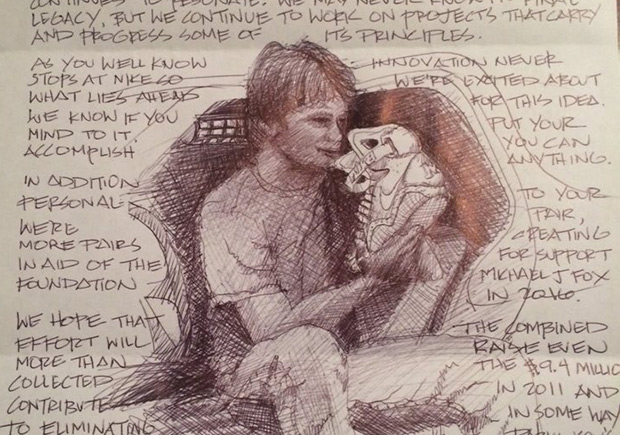 CONTINUES TO RESONATE. WE MAY NEVER KNOW ITS FINAL
LEGACY, BUT WE CONTINUE TO WORK ON PROJECTS THAT CARRY
AND PROGRESS SOME OF ITS PRINCIPLES.
AS YOU WELL KNOW INNOVATION NEVER
STOPS AT NIKE SO WE'RE EXCITED ABOUT
WHAT LIES AHEAD FOR THIS IDEA.
WE KNOW IF YOU PUT YOUR
MIND TO IT. YOU CAN
ACCOMPLISH ANYTHING.
IN ADDITION TO YOUR
PERSONAL PAIR,
WE'RE CREATING
MORE PAIRS FOR SUPPORT
IN AID OF THE MICHAEL J FOX
FOUNDATION IN 2016.
WE HOPE THAT THE COMBINED
EFFORT WILL RAISE EVEN
MORE THAN THE $9.4 MILLIO
COLLECTED IN 2011 AND
CONTRIBUTE IN SOME WAY
TO ELIMINATING